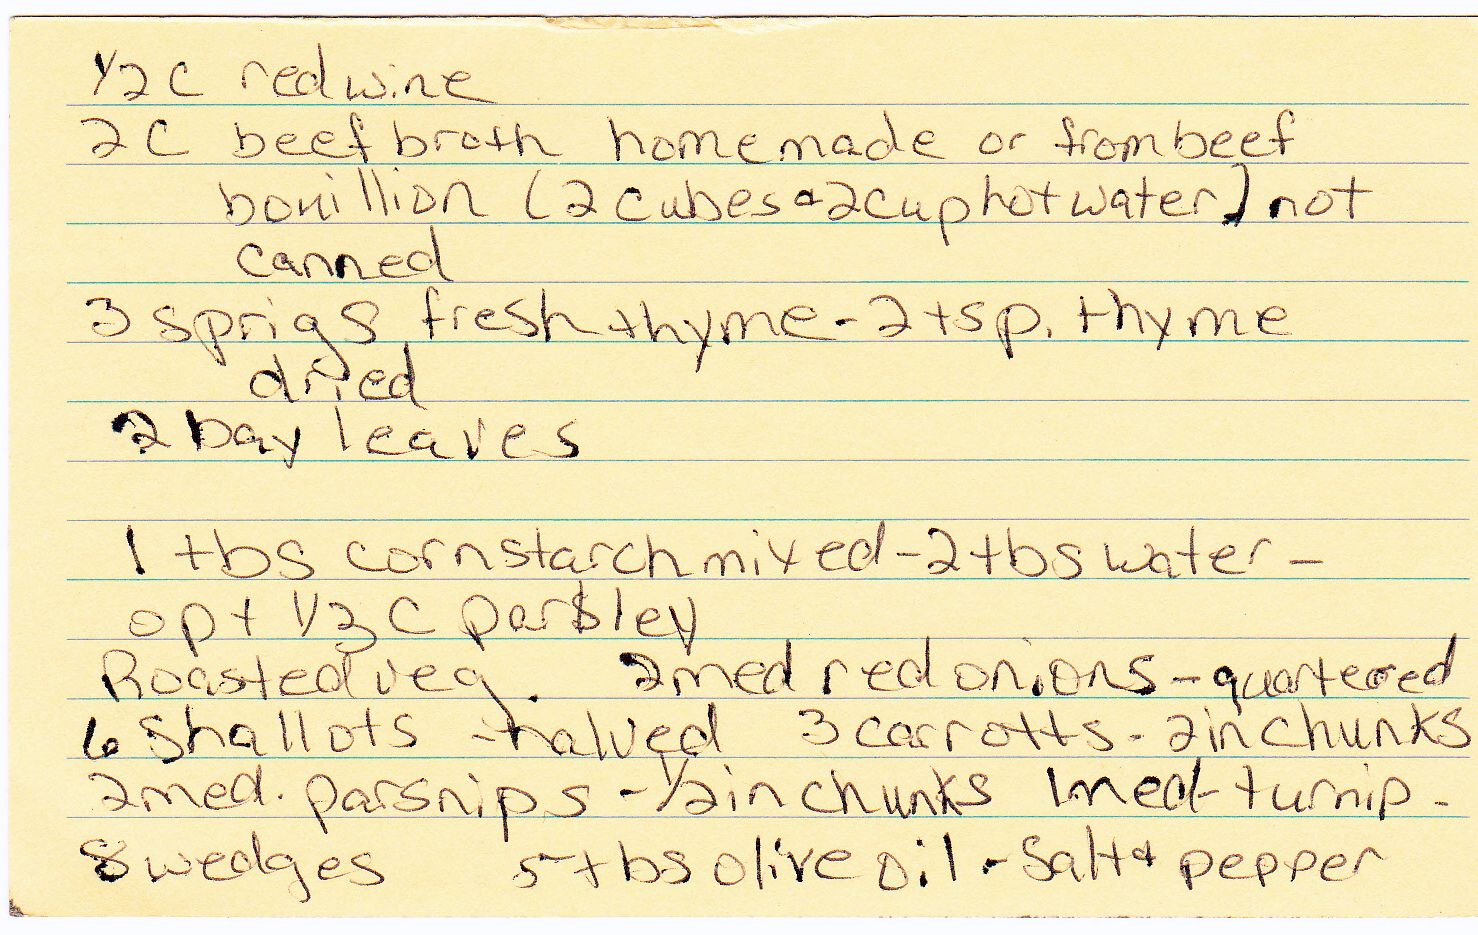 1/2 C red wine
2 C beef broth homemade or from beef
bouillion (2 cubes & 2 cup hot water) not
canned
3 sprigs fresh thyme - 2 tsp. thyme
dried
2 bay leaves
1 tbs cornstarch mixed - 2 tbs water -
opt 1/3 C parsley
Roasted veg. 2 med red onions - quartered
6 shallots - halved 3 carrotts - 2 in chunks
2 med. parsnips - 1/2 in chunks 1 med - turnip -
8 wedges 5 tbs olive oil - Salt & pepper